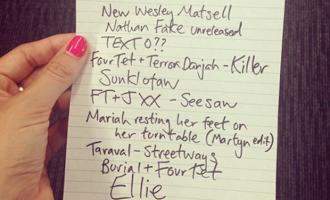 New Wesley Matsell
Nathan Fake unreleased
TEXT 0??
Four Tet + Terror Danjah - Killer
Sunklofaw
FT + JXX - Seesaw
Mariah resting her feet on
her turntable (Martyn edit)
Taraval - Streetways
Burial + Four Tet
Ellie